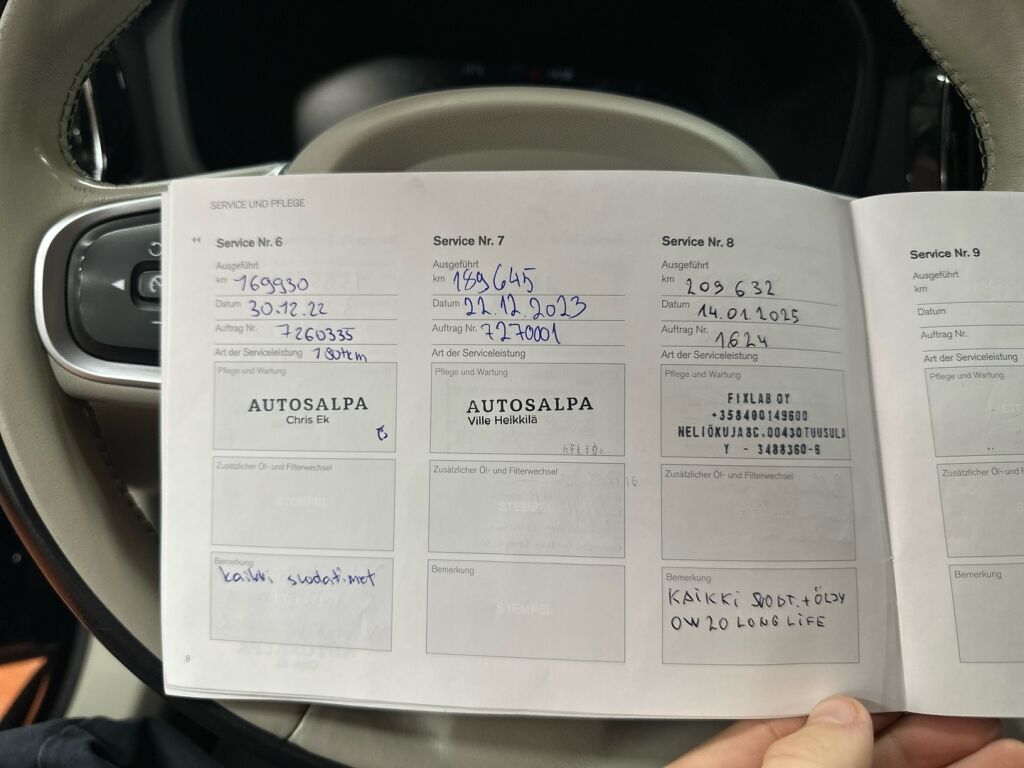 SERVICE UND PFLEGE
Service Nr. 6
Ausgeführt
km 169930
Datum 30.12.22
Auftrag Nr. 7260335
Art der Serviceleistung 180tkm
Pflege und Wartung
AUTOSALPA
Chris Ek
Zusätzlicher Öl- und Filterwechsel
STEMPEL
Bemerkung
kaikki suodattimet
8
Service Nr. 7
Ausgeführt
km 189645
Datum 22.12.2023
Auftrag Nr. 7270001
Art der Serviceleistung
Pflege und Wartung
AUTOSALPA
Ville Heikkilä
Zusätzlicher Öl- und Filterwechsel
STEMPEL
Bemerkung
STEMPEL
Service Nr. 8
Ausgeführt
km 209 632
Datum 14.01.2025
Auftrag Nr. 1624
Art der Serviceleistung
Pflege und Wartung
FIXLAB OY
+358400149600
NELIÖKUJA8C.00430TUUSULA
Y - 3488360-6
Zusätzlicher Öl- und Filterwechsel
Bemerkung
KAIKKI SUODT. + ÖLJY
0W20 LONG LIFE
Service Nr. 9
Ausgeführt
km
Datum
Auftrag Nr.
Art der Serviceleistung
Pflege und Wartung
Zusätzlicher Öl- und
Bemerkung